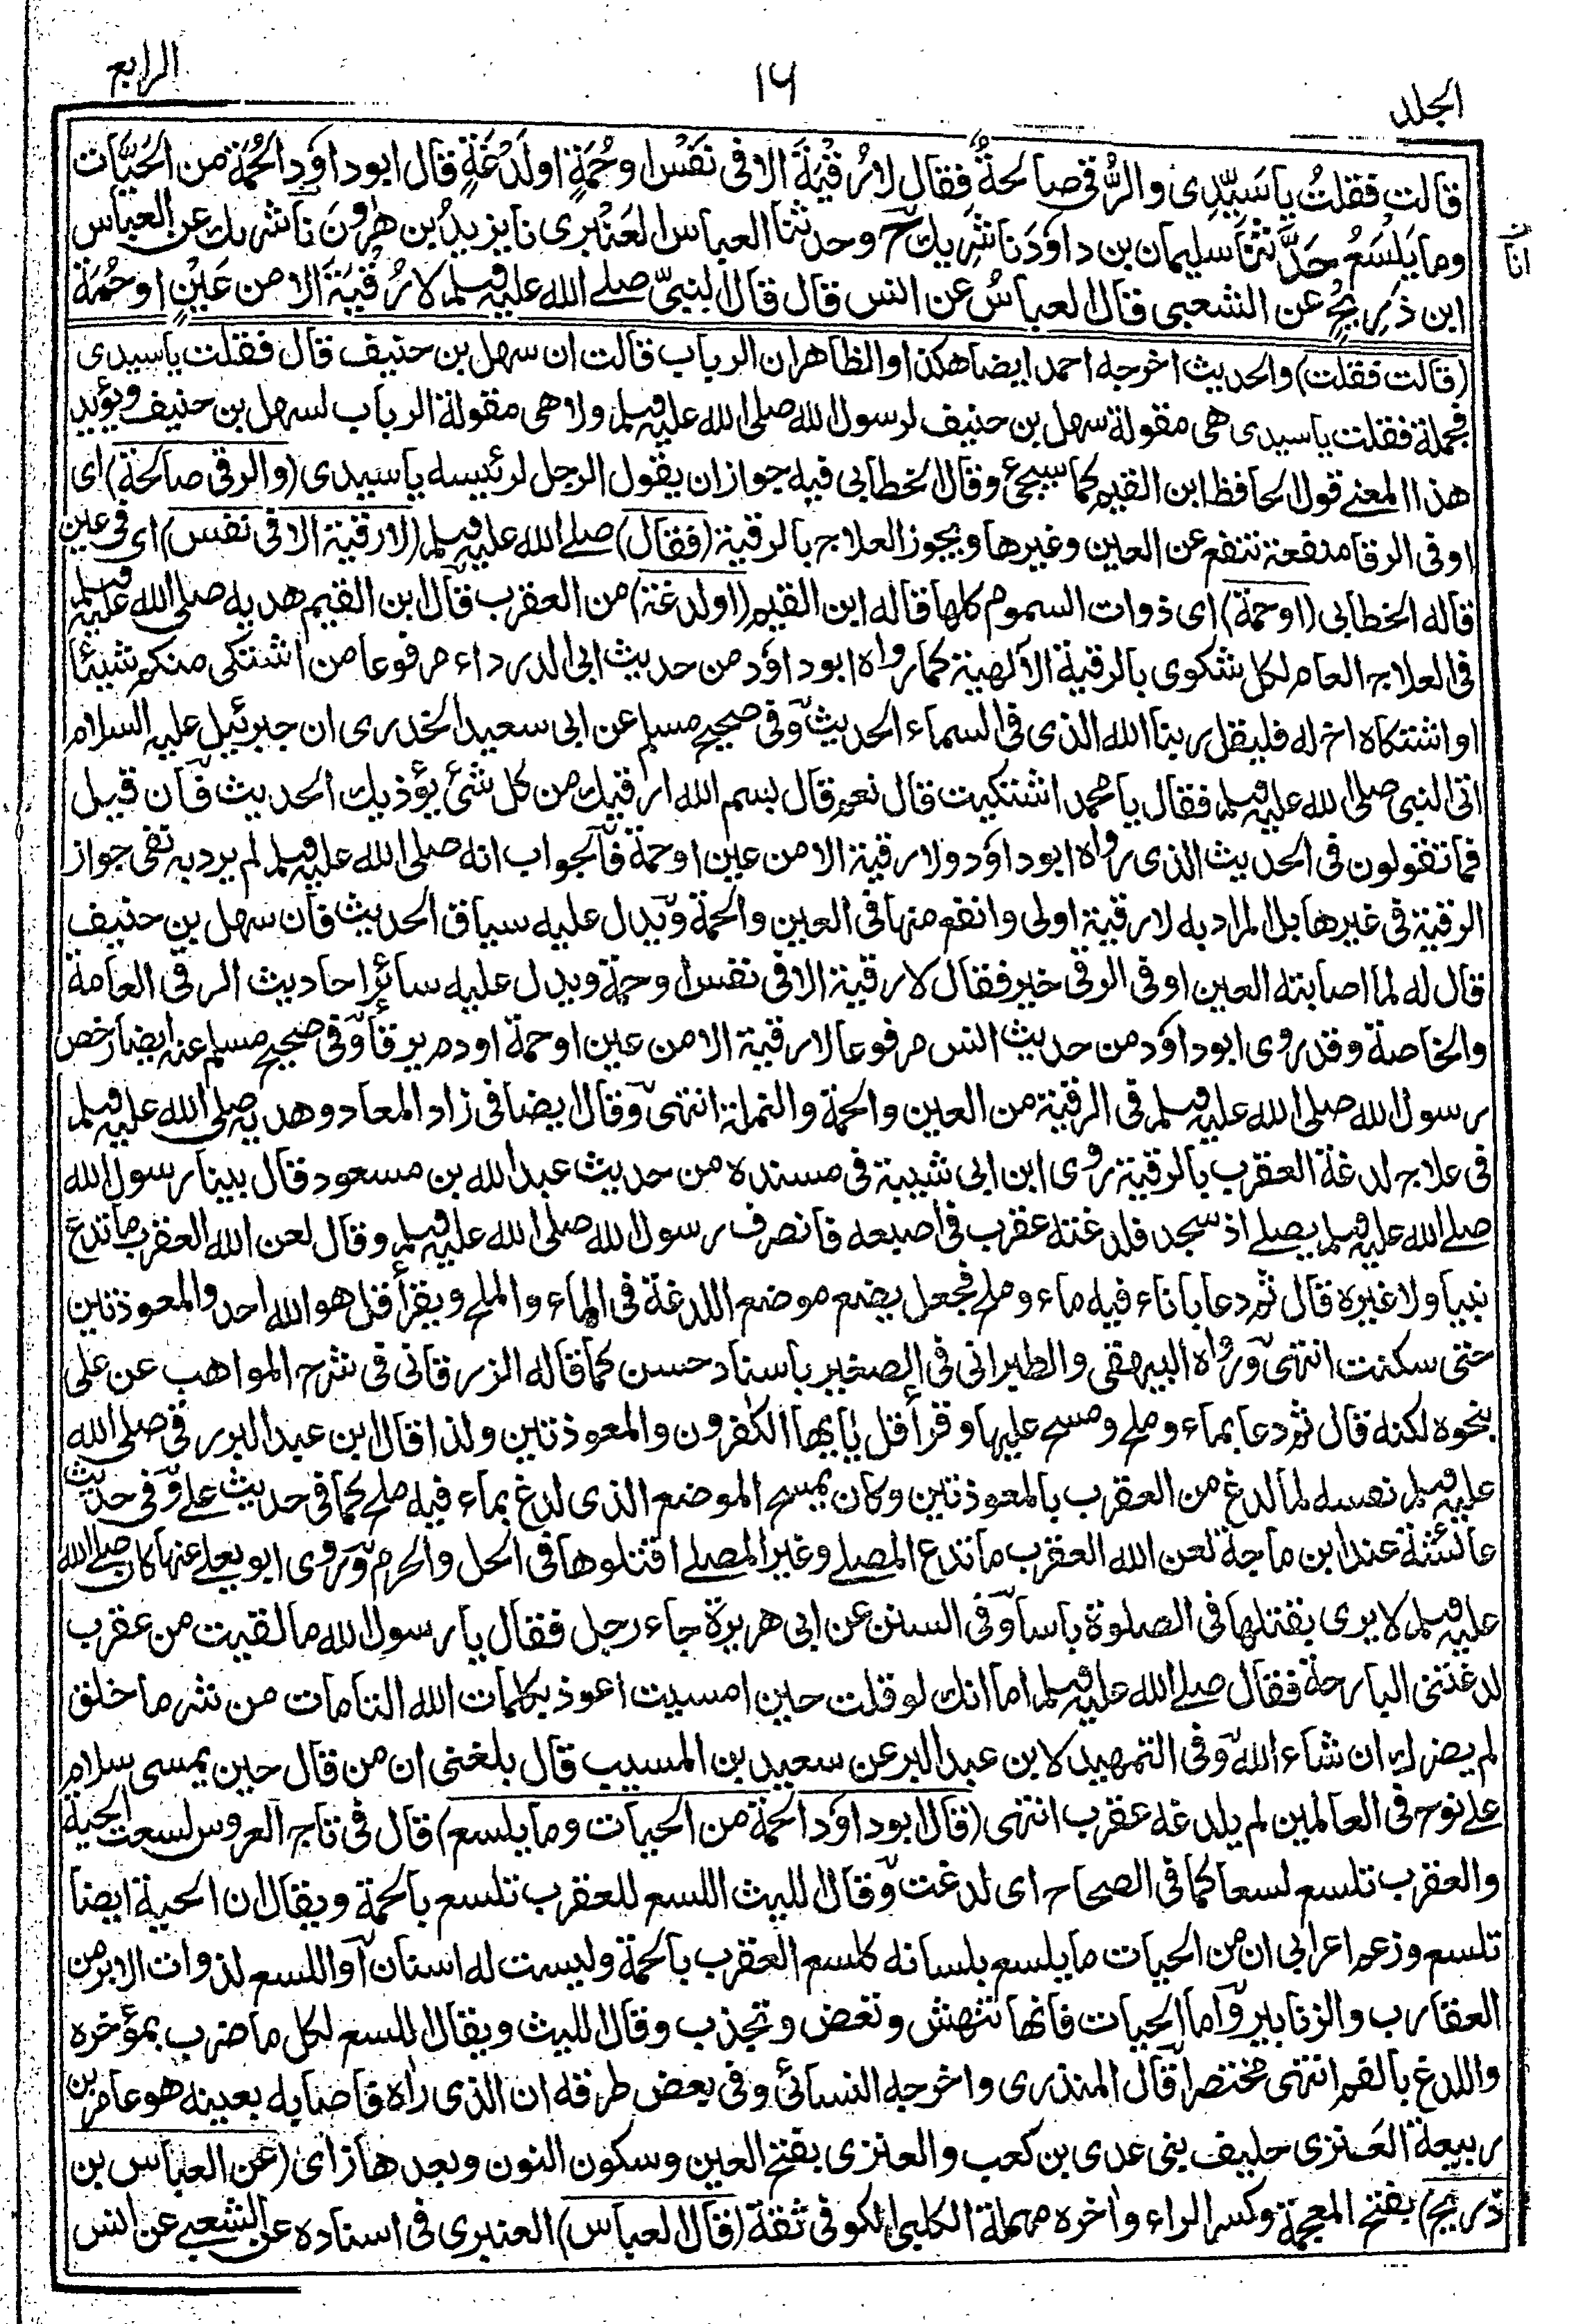 الجلد
١٦
الرابع
قالت فقلتُ ياسَيِّدِى والرُّقى صالحةٌ فقال لا رُقْيَةَ الا فى نَفْسٍ اوحُمَةٍ اولَدْغَةٍ قال ابوداؤد الحُمَةُ من الحَيَّات
وما يَلْسَعُ حَدَّثنا سليمان بن داوٗدَ نا شَرِيك ح وحدثنا العباس العَنْبَرى نا يزيدُ بن هٰرُونَ نا شريك عن العباس
انا
ابن ذَرِيحٍ عن الشعبى قال العباسُ عن انس قال قال النبىّ صلے الله عليه وسلم لا رُقْيَةَ الا من عَيْنٍ اوحُمَةٍ
(قالت فقلت) والحديث اخرجه احمد ايضا هكذا والظاهر ان الرباب قالت ان سهل بن حنيف قال فقلت ياسيدى
فجملة فقلت ياسيدى هى مقولة سهل بن حنيف لرسول الله صلى الله عليه وسلم ولا هى مقولة الرباب لسهل بن حنيف ويؤيد
هذا المعنے قول الحافظ ابن القيم كما سيجئ وقال الخطابى فيه جواز ان يقول الرجل لرئيسه ياسيدى (والرقى صالحة) اى
اوفى الرقا منفعة تنفع عن العين وغيرها ويجوز العلاج بالرقية (فقال) صلے الله عليه وسلم (لارقية الا فى نفس) اى فى عين
قاله الخطابى (اوحمة) اى ذوات السموم كلها قاله ابن القيم (اولدغة) من العقرب قال ابن القيم هديه صلى الله عليه وسلم
فى العلاج العام لكل شكوى بالرقية الالهية كما رواه ابوداؤد من حديث ابى الدرداء مرفوعا من اشتكى منكم شيئا
اواشتكاه اخ له فليقل ربنا الله الذى فى السماء الحديث وفى صحيح مسلم عن ابى سعيد الخدرى ان جبرئيل عليه السلام
اتى النبى صلى الله عليه وسلم فقال يا محمد اشتكيت قال نعم قال بسم الله ارقيك من كل شئ يؤذيك الحديث فان قيل
فما تقولون فى الحديث الذى رواه ابوداؤد ولا رقية الا من عين اوحمة فالجواب انه صلى الله عليه وسلم لم يرد به نفى جواز
الرقية فى غيرها بل المراد به لا رقية اولى وانفع منها فى العين والحمة ويدل عليه سياق الحديث فان سهل بن حنيف
قال له لما اصابته العين اوفى الرقى خير فقال لا رقية الا فى نفس اوحمة ويدل عليه سائر احاديث الرقى العامة
والخاصة وقد روى ابوداؤد من حديث انس مرفوعا لا رقية الا من عين اوحمة اودم يرقأ وفى صحيح مسلم عنه ايضا رخص
رسول الله صلى الله عليه وسلم فى الرقية من العين والحمة والنملة انتهى وقال ايضا فى زاد المعاد وهديه صلى الله عليه وسلم
فى علاج لدغة العقرب بالرقية روى ابن ابى شيبة فى مسنده من حديث عبد الله بن مسعود قال بينا رسول الله
صلے الله عليه وسلم يصلے اذ سجد فلدغته عقرب فى اصبعه فانصرف رسول الله صلى الله عليه وسلم وقال لعن الله العقرب ماتدع
نبيا ولا غيره قال ثم دعا باناء فيه ماء وملح فجعل يضع موضع اللدغة فى الماء والملح ويقرأ قل هو الله احد والمعوذتين
حتى سكنت انتهى ورواه البيهقى والطبرانى فى الصغير باسناد حسن كما قاله الزرقانى فى شرح المواهب عن على
بنحوه لكنه قال ثم دعا بماء وملح ومسح عليها وقرأ قل يٰايها الكٰفرون والمعوذتين ولذا قال ابن عبد البر رقى صلى الله
عليه وسلم نفسه لما لدغ من العقرب بالمعوذتين وكان يمسح الموضع الذى لدغ بماء فيه ملح كما فى حديث علے وفى حديث
عائشة عند ابن ماجة لعن الله العقرب ماتدع المصلے وغير المصلے اقتلوها فى الحل والحرم وروى ابو يعلے عنها كان صلے الله
عليه وسلم لا يرى بقتلها فى الصلوة باسا وفى السنن عن ابى هريرة جاء رجل فقال يا رسول الله مالقيت من عقرب
لدغتنى البارحة فقال صلے الله عليه وسلم اما انك لوقلت حين امسيت اعوذ بكلمات الله التامات من شر ما خلق
لم يضرك ان شاء الله وفى التمهيد لابن عبد البر عن سعيد بن المسيب قال بلغنى ان من قال حين يمسى سلام
علے نوح فى العالمين لم يلدغه عقرب انتهى (قال ابوداؤد الحمة من الحيات وما يلسع) قال فى تاج العروس لسعت الحية
والعقرب تلسع لسعا كما فى الصحاح اى لدغت وقال الليث اللسع للعقرب تلسع بالحمة ويقال ان الحية ايضا
تلسع وزعم اعرابى ان من الحيات ما يلسع بلسانه كلسع العقرب بالحمة وليست له اسنان اواللسع لذوات الابر من
العقارب والزنابير واما الحيات فانها تنهش وتعض وتجذب وقال الليث ويقال اللسع لكل ما ضرب بمؤخره
واللدغ بالفم انتهى مختصرا قال المنذرى واخرجه النسائى وفى بعض طرقه ان الذى رٰاه فاصابه بعينه هو عامر بن
ربيعة العَنزى حليف بنى عدى بن كعب والعنزى بفتح العين وسكون النون وبعدها زاى (عن العباس بن
ذريح) بفتح المعجمة وكسر الراء واٰخره مهملة الكلبى الكوفى ثقة (قال العباس) العنبرى فى اسناده عن الشعبے عن انس